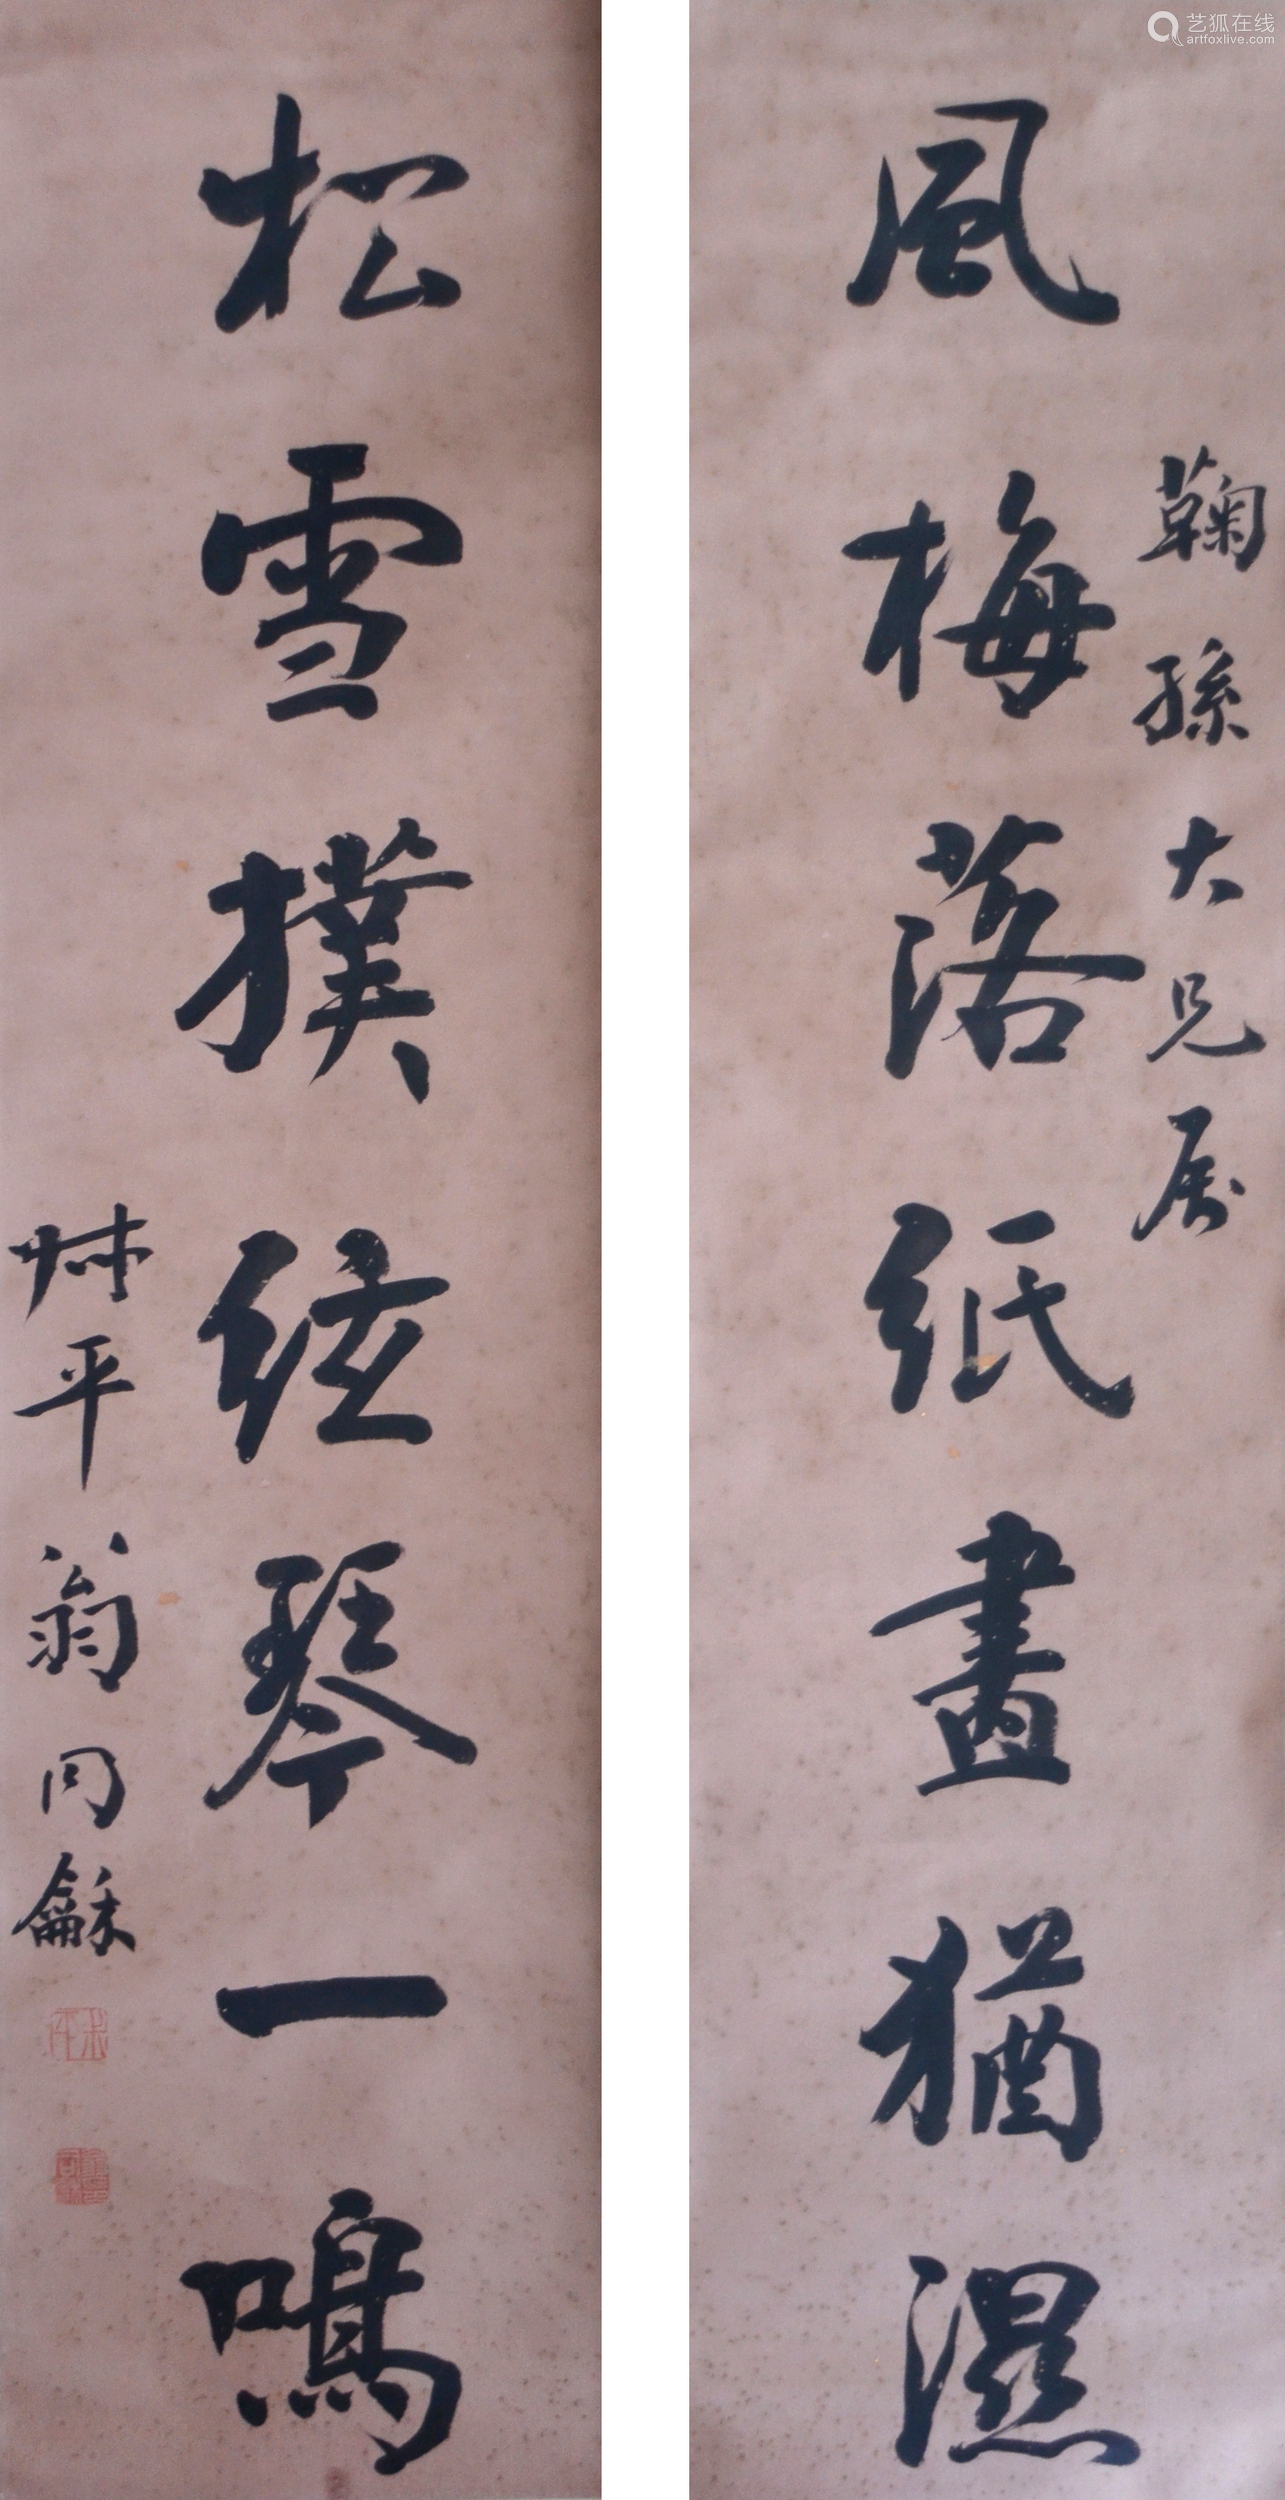 鞠孫大兄属
風梅落紙畫猶濕
松雪撲絃琴一鳴
叔平翁同龢
艺狐在线
artfoxlive.com